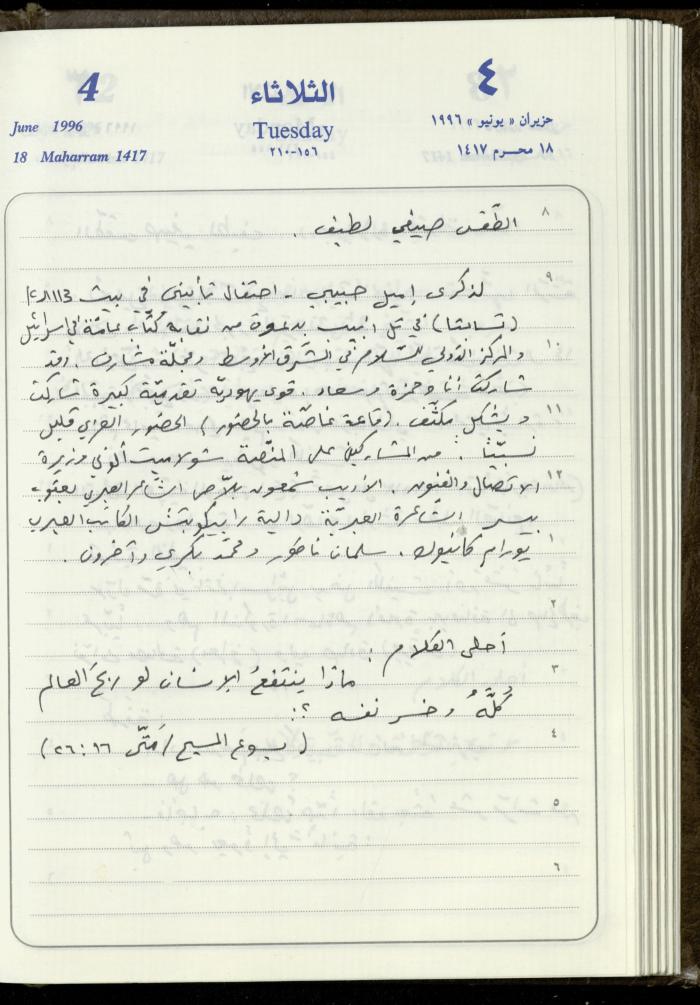 4
الثلاثاء
٤
June 1996
Tuesday
حزيران « يونيو » ١٩٩٦
18 Maharram 1417
١٥٦-٢١٠
١٨ محرم ١٤١٧
٨
الطقس صيفي لطيف .
٩
لذكرى إميل حبيبي - احتفال تأبيني في بيت
(تسافتا) في تل أبيب بدعوة من نقابة كتّاب عامّة في إسرائيل
١٠
والمركز الدولي للسّلام في الشّرق الأوسط ومجلّة مشارف. وقد
شاركت أنا وحمزة وسعاد. قوى يهوديّة تقدميّة كبيرة شاركت
١١
وبشكل مكثّف. (قاعة غاصّة بالحضور) الحضور العربي قليل
نسبيّاً. من المشاركين على المنصّة شولاميت ألوني وزيرة
١٢
الاتصال والفنون. الأديب شمعون بلاّص الشاعر العبري يعقوب
بيسر الشاعرة العبريّة دالية رابيكوبتش الكاتب العبري
١
يورام كانيوك. سلمان ناطور ومحمّد بكري وآخرون.
٢
أحلى الكلام :
٣
ماذا ينتفعُ الإنسان لو ربحَ العالم
كُلَّهُ وخسر نفسه ؟!
٤
(يسوع المسيح / مَتّى ١٦ : ٢٦)
٥
٦